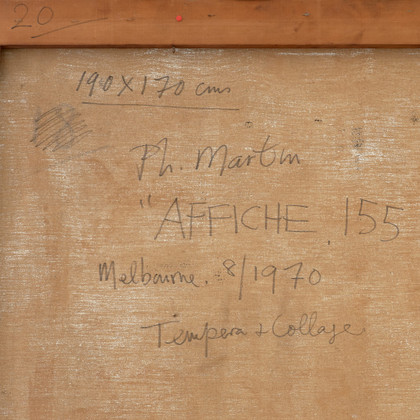 20
190X170 cms
Ph. Martin
"AFFICHE. 155
Melbourne. 8/1970
Tempera + Collage